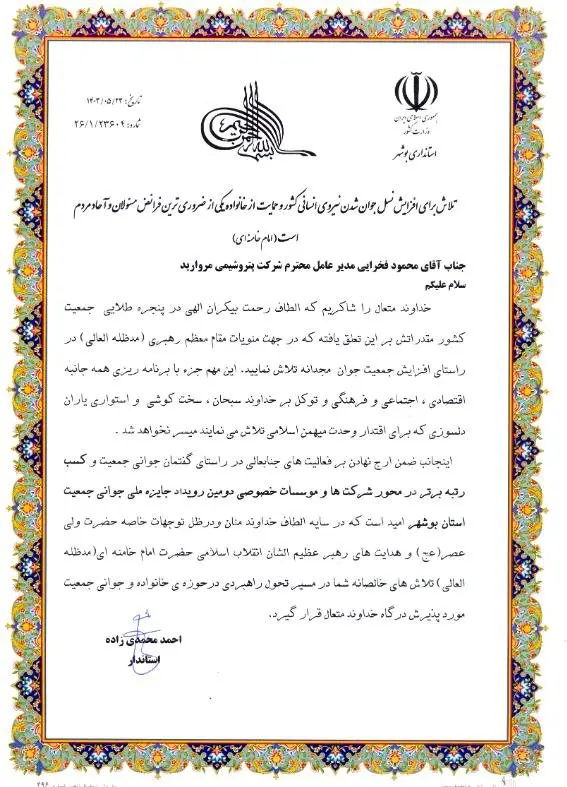 جمهوری اسلامی ایران
وزارت کشور
استانداری بوشهر
تاریخ: ۱۴۰۳/۰۵/۲۳
شماره: ۲۶/۱/۲۳۶۰۴
تلاش برای افزایش نسل جوان شدن نیروی انسانی کشور و حمایت از خانواده یکی از ضروری ترین فرائض مسئولان و آحاد مردم
است (امام خامنه ای)
جناب آقای محمود فخرایی مدیر عامل محترم شرکت پتروشیمی مروارید
سلام علیکم
خداوند متعال را شاکریم که الطاف رحمت بیکران الهی در پنجره طلایی جمعیت
کشور مقدراتش بر این تعلق یافته که در جهت منویات مقام معظم رهبری (مدظله العالی) در
راستای افزایش جمعیت جوان مجدانه تلاش نمایید. این مهم جزء با برنامه ریزی همه جانبه
اقتصادی ، اجتماعی و فرهنگی و توکل بر خداوند سبحان ، سخت کوشی و استواری یاران
دلسوزی که برای اقتدار وحدت میهن اسلامی تلاش می نمایند میسر نخواهد شد .
اینجانب ضمن ارج نهادن بر فعالیت های جنابعالی در راستای گفتمان جوانی جمعیت و کسب
رتبه برتر در محور شرکت ها و موسسات خصوصی دومین رویداد جایزه ملی جوانی جمعیت
استان بوشهر امید است که در سایه الطاف خداوند منان ودرظل توجهات خاصه حضرت ولی
عصر(عج) و هدایت های رهبر عظیم الشان انقلاب اسلامی حضرت امام خامنه ای(مدظله
العالی) تلاش های خالصانه شما در مسیر تحول راهبردی درحوزه ی خانواده و جوانی جمعیت
مورد پذیرش درگاه خداوند متعال قرار گیرد.
احمد محمدی زاده
استاندار